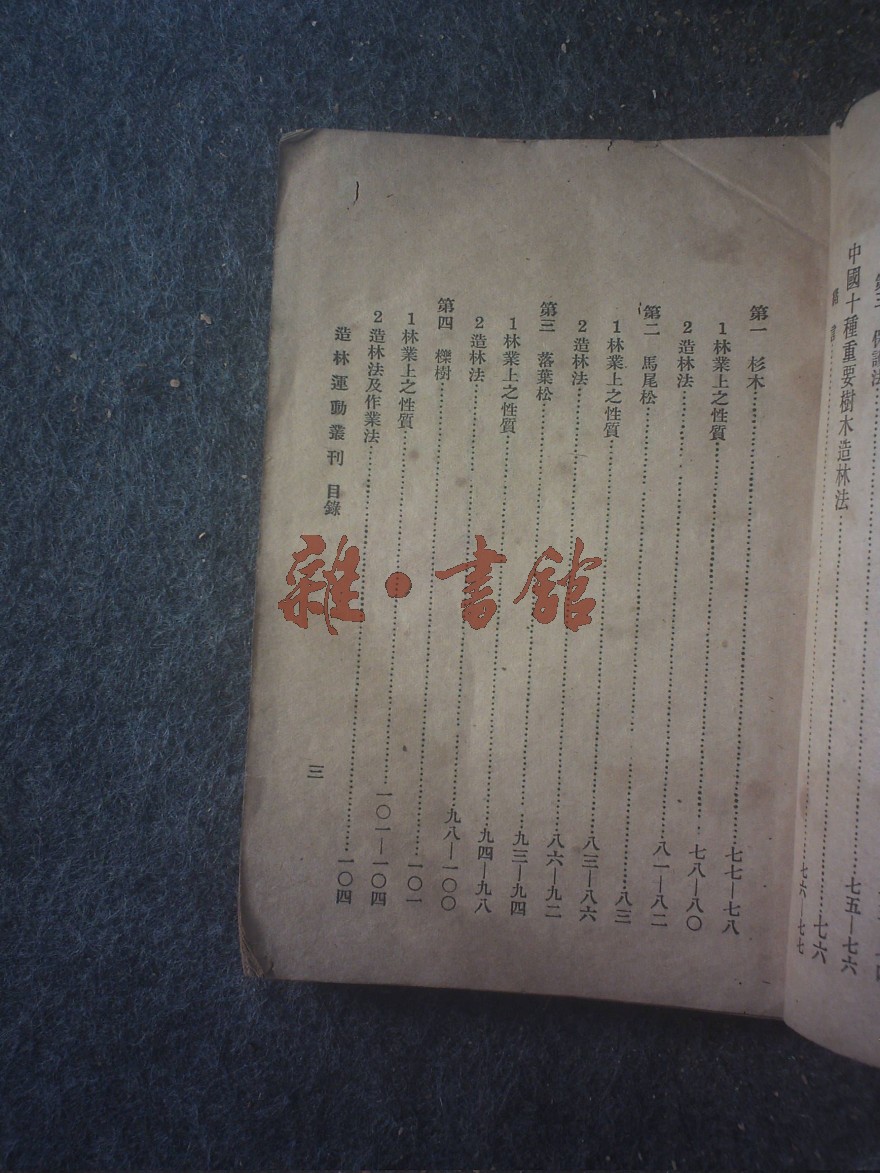 中國十種重要樹木造林法……七六
第一　杉木……七七—七八
1林業上之性質……七八—八〇
2造林法……八一—八二
第二　馬尾松……八三
1林業上之性質……八三—八六
2造林法……八六—九二
第三　落葉松……九三—九四
1林業上之性質……九四—九八
2造林法……九八—一〇〇
第四　櫟樹……一〇一
1林業上之性質……一〇一—一〇四
2造林法及作業法……一〇四
造林運動叢刊　目錄　三
雜·書館